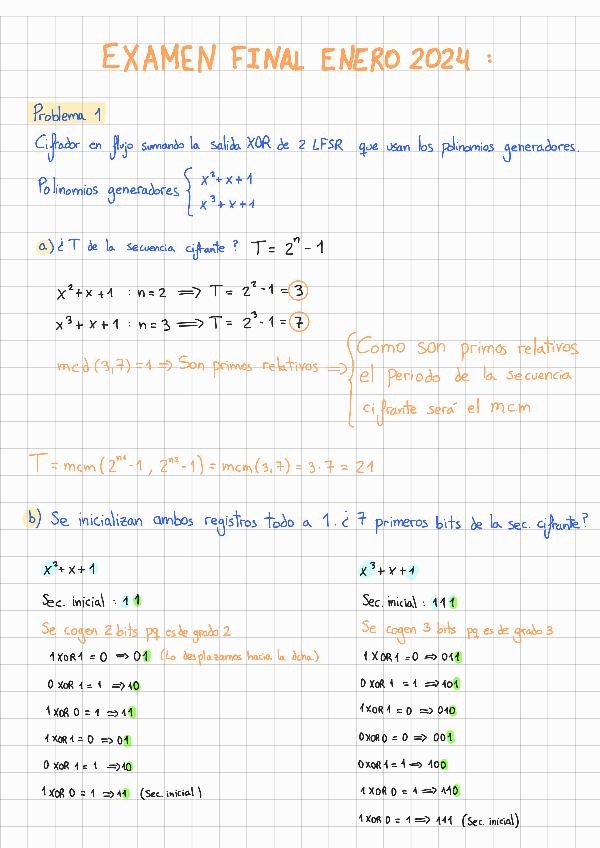 EXAMEN FINAL ENERO 2024 :
Problema 1
Cifrador en flujo sumando la salida XOR de 2 LFSR que usan los polinomios generadores.
Polinomios generadores { x²+x+1
x³+x+1
a) ¿T de la secuencia cifrante? T = 2ⁿ - 1
x²+x+1 : n=2 ⟹ T = 2²-1 = 3
x³+x+1 : n=3 ⟹ T = 2³-1 = 7
mcd(3,7)=1 ⟹ Son primos relativos ⟹ { Como son primos relativos
el periodo de la secuencia
cifrante será el mcm
T = mcm(2ⁿ¹-1, 2ⁿ²-1) = mcm(3,7) = 3·7 = 21
b) Se inicializan ambos registros todo a 1. ¿7 primeros bits de la sec. cifrante?
x²+x+1
Sec. inicial : 11
Se cogen 2 bits pq es de grado 2
1 XOR 1 = 0 ⟹ 01 (Lo desplazamos hacia la dcha.)
0 XOR 1 = 1 ⟹ 10
1 XOR 0 = 1 ⟹ 11
1 XOR 1 = 0 ⟹ 01
0 XOR 1 = 1 ⟹ 10
1 XOR 0 = 1 ⟹ 11 (Sec. inicial)
x³+x+1
Sec. inicial : 111
Se cogen 3 bits pq es de grado 3
1 XOR 1 = 0 ⟹ 011
0 XOR 1 = 1 ⟹ 101
1 XOR 1 = 0 ⟹ 010
0 XOR 0 = 0 ⟹ 001
0 XOR 1 = 1 ⟹ 100
1 XOR 0 = 1 ⟹ 110
1 XOR 0 = 1 ⟹ 111 (Sec. inicial)